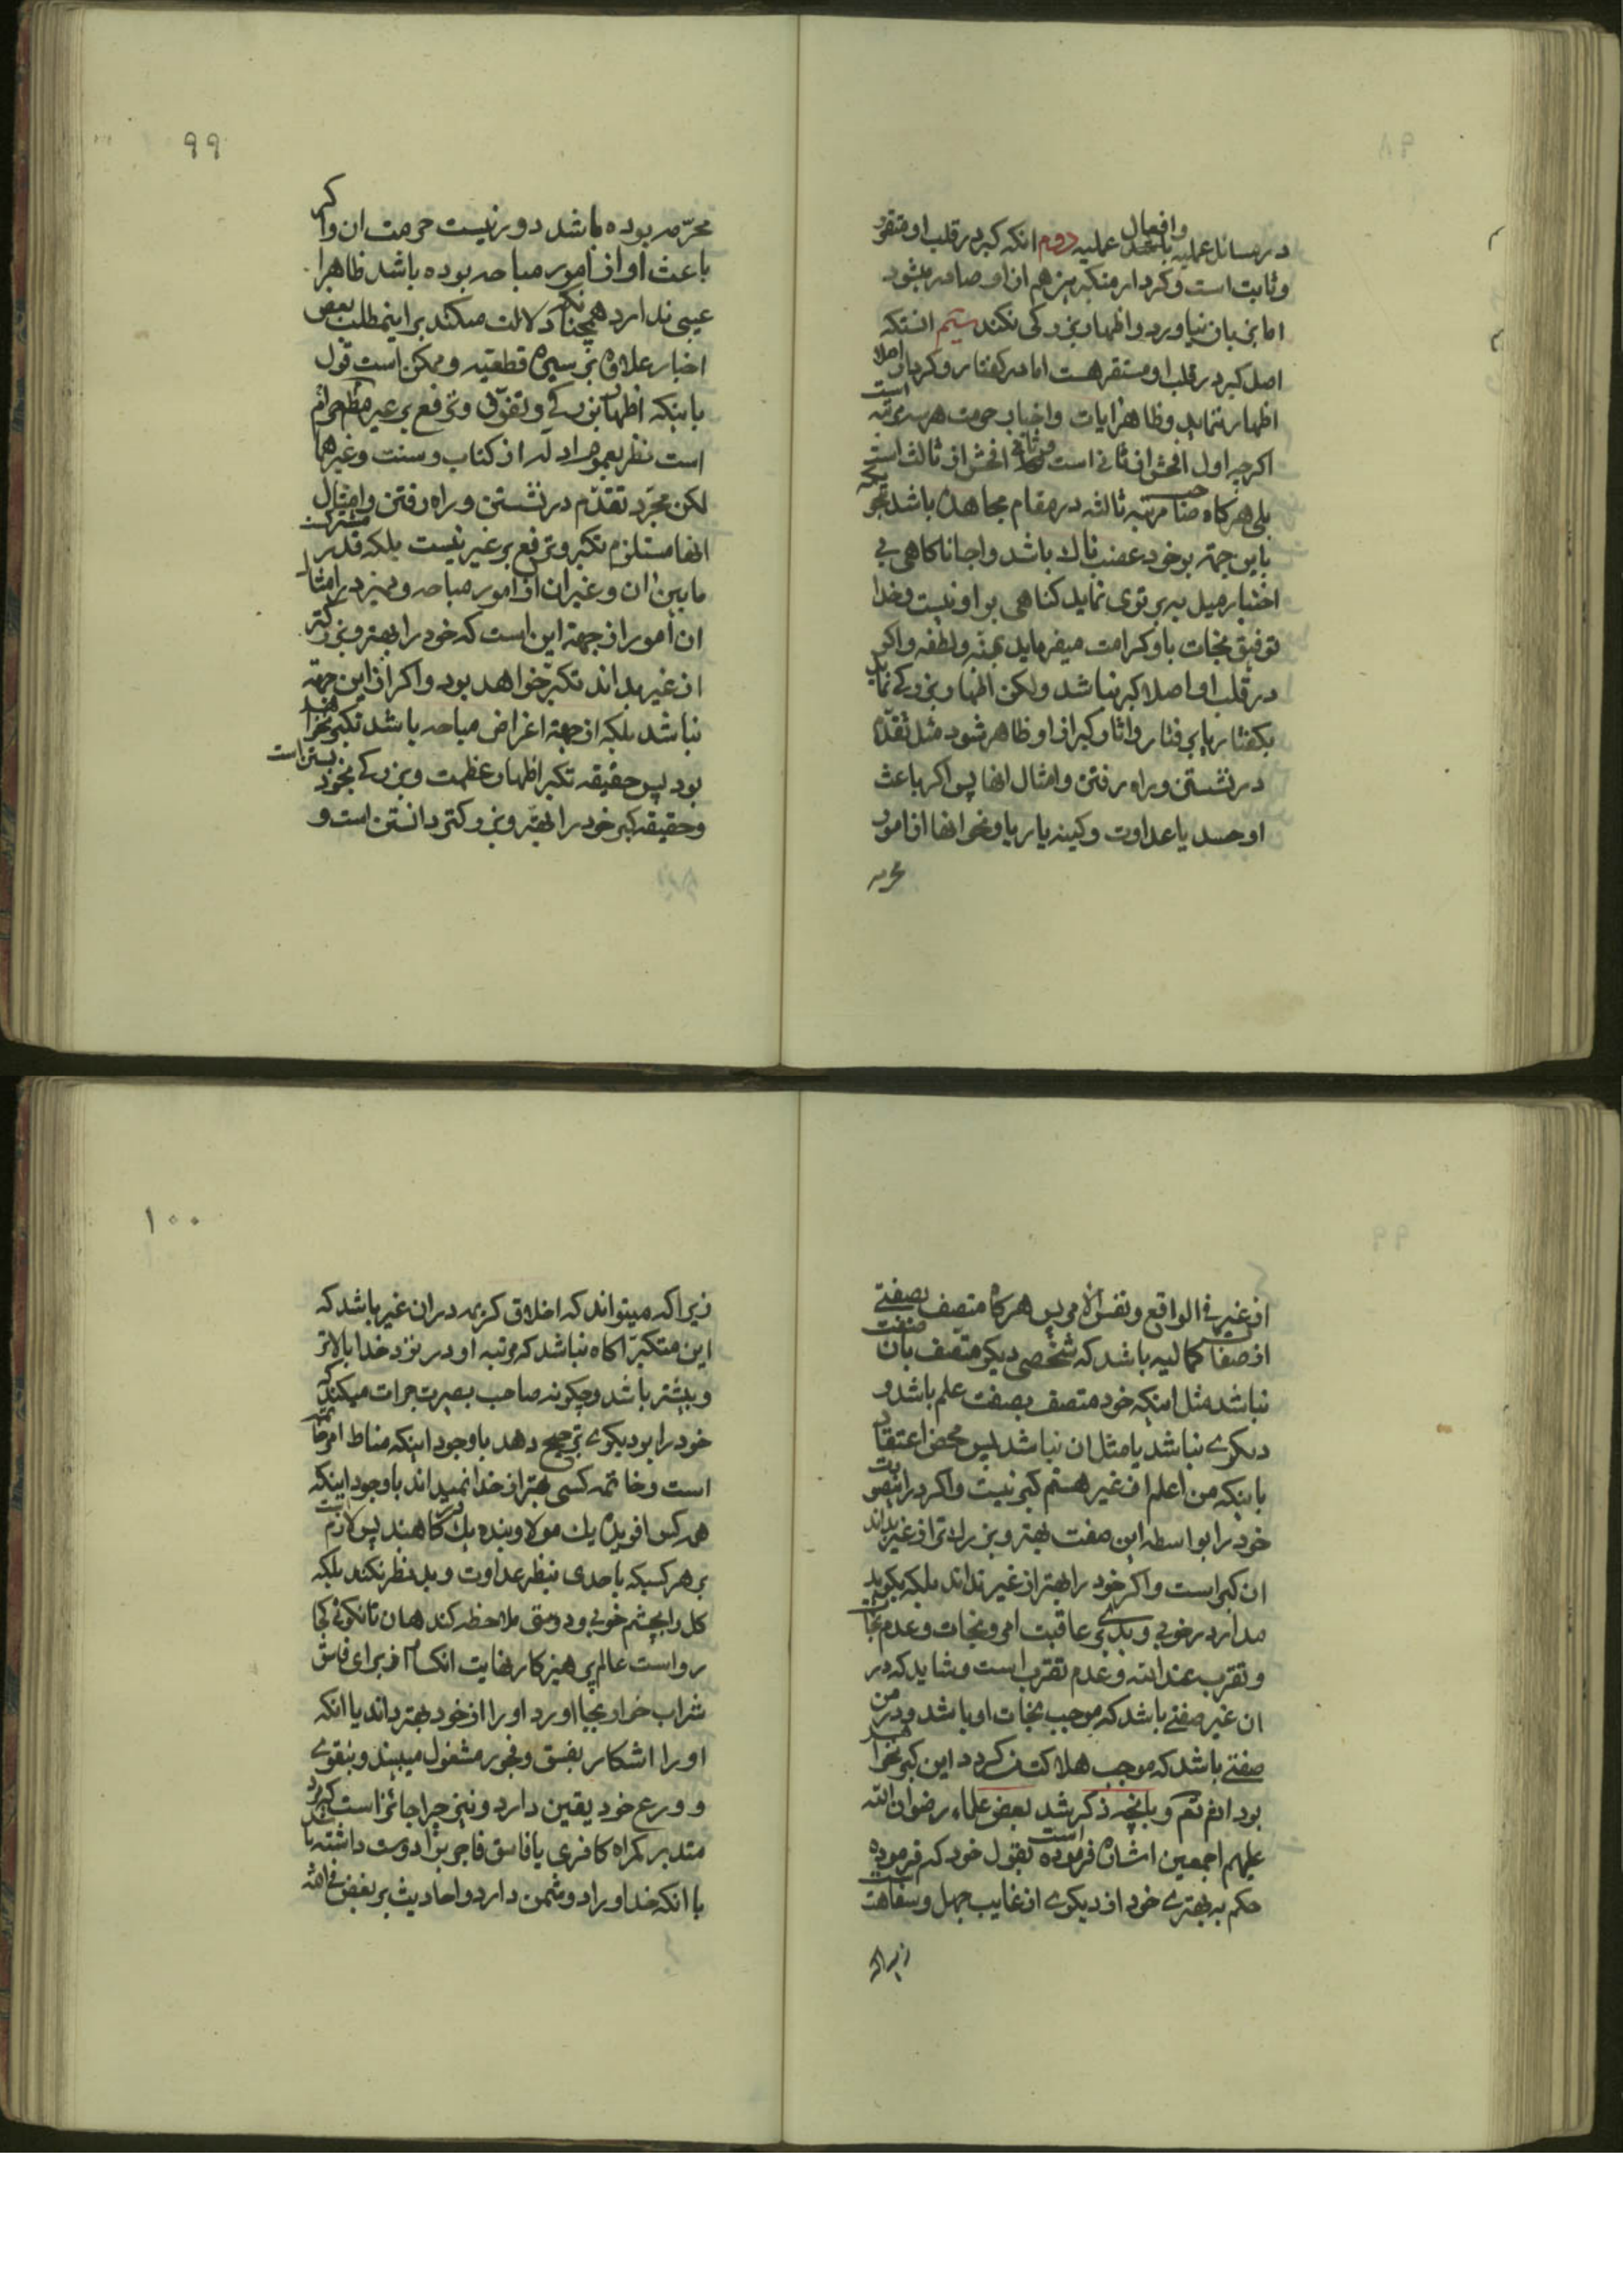 در مسائل عملیه باشد وافعال عملیه دوم انکه کبر در قلب او متقرر
و ثابت است و کردار متکبرین هم از او صادر میشود
اما بزبان نیاورد و اظهار بزرکی نکند سیّم انستکه
اصل کبر در قلب او مستقر هست اما در کفتار و کردار اصلا
اظهار ننماید و ظاهر ایات و اخبار حرمت هر سه مرتبه است
اکرچه اول افحش از ثانی است و ثانی افحش از ثالث است
بلی هرکاه صاحب مرتبه ثالثه در مقام مجاهده باشد
باین جهة بر خود غضب ناک باشد و احیانا کاهی بی
اختیار میل به برتری نماید کناهی بر او نیست و خدا
توفیق نجات باو کرامت میفرماید بمنه و لطفه و اکر
در قلب او اصلا کبر نباشد ولکن اظهار بزرکی نماید
بکفتار یا برفتار و اثار کبر از او ظاهر شود مثل تقدم
در نشستن و راه رفتن و امثال انها پس اکر باعث
او حسد یا عداوت و کینه یا ریا و نحو انها از امور
محرمه
۹۹
محرّمه بوده باشد دور نیست حرمت ان و اکر
باعث او از امور مباحه بوده باشد ظاهرا
عیبی ندارد همچنانکه دلالت میکند بر اینمطلب بعض
اخبار علاوه بر سیره قطعیه و ممکن است قول
باینکه اظهار بزرکی و تفوّق و ترفع بر غیر مطم حرام
است نظر بعموم ادله از کتاب و سنت و غیرهما
لکن مجرّد تقدّم در نشستن و راه رفتن و امثال
انها مستلزم تکبر و ترفع بر غیر نیست بلکه قدر مشترکست
ما بین ان و غیر ان از امور مباحه و نیز در امثال
ان امور از جهة این است که خود را بهتر و بزرکتر
از غیر بداند تکبّر خواهد بود و اکر از این جهة
نباشد بلکه از جهة اغراض مباحه باشد تکبر نخواهد
بود پس حقیقه تکبر اظهار عظمت و بزرکی بخود بستن است
و حقیقه کبر خود را بهتر و بزرکتر دانستن است و
از غیر فی الواقع و نفس الامر پس هرکاه متصف بصفتی
از صفات کمالیه باشد که شخصی دیکر متصف بان صفت
نباشد مثل اینکه خود متصف بصفت علم باشد و
دیکری نباشد یا مثل ان نباشد پس محض اعتقاد
باینکه من اعلم از غیر هستم کبر نیست و اکر در اینصورت
خود را بواسطه این صفت بهتر و بزرک تر از غیر بداند
ان کبر است و اکر خود را بهتر از غیر نداند بلکه بکوید
مدار در خوبی و بدی بر عاقبت امر و نجات و عدم نجات
و تقرب عند الله و عدم تقرب است و شاید که در
ان غیر صفتی باشد که موجب نجات او باشد و در من
صفتی باشد که موجب هلاکت من کردد این کبر نخواهد
بود انم تعم و بانچه ذکر شد بعض علماء رضوان الله
علیهم اجمعین اشاره فرموده است بقول خود که فرموده
حکم به بهتری خود از دیکری از غایب جهل و سفاهت
زیراکه
۱۰۰
زیراکه میتواند که اخلاق کریمه در ان غیر باشد که
این متکبر اکاه نباشد که مرتبه او در نزد خدا بالاتر
و بیشتر باشد و چکونه صاحب بصیرت جرات میکند که
خود را بر دیکری ترجیح دهد باوجود اینکه مناط امر خاتمه
است و خاتمه کسی بغیر از خدا نمیداند باوجود اینکه
همه کس افریده یک مولا و بنده یک درکاهند پس لازم است
بر هر کسیکه باحدی بنظر عداوت و بد نظر نکند بلکه
کل را بچشم خوبی و دوستی ملاحظه کند همان تا نکوئی کجا
رواست عالم پرهیزکار نهایت انکسار از برای فاسق
شراب خوار بجا اورد او را از خود بهتر داند یا انکه
او را اشکار بفسق و فجور مشغول میبیند و بتقوی
و ورع خود یقین دارد و نیز چرا جائز است که مرد
متدین کمراه کافری یا فاسق فاجری را دوست داشته باشد
با انکه خدا او را دشمن دارد و احادیث بر بغض فی الله